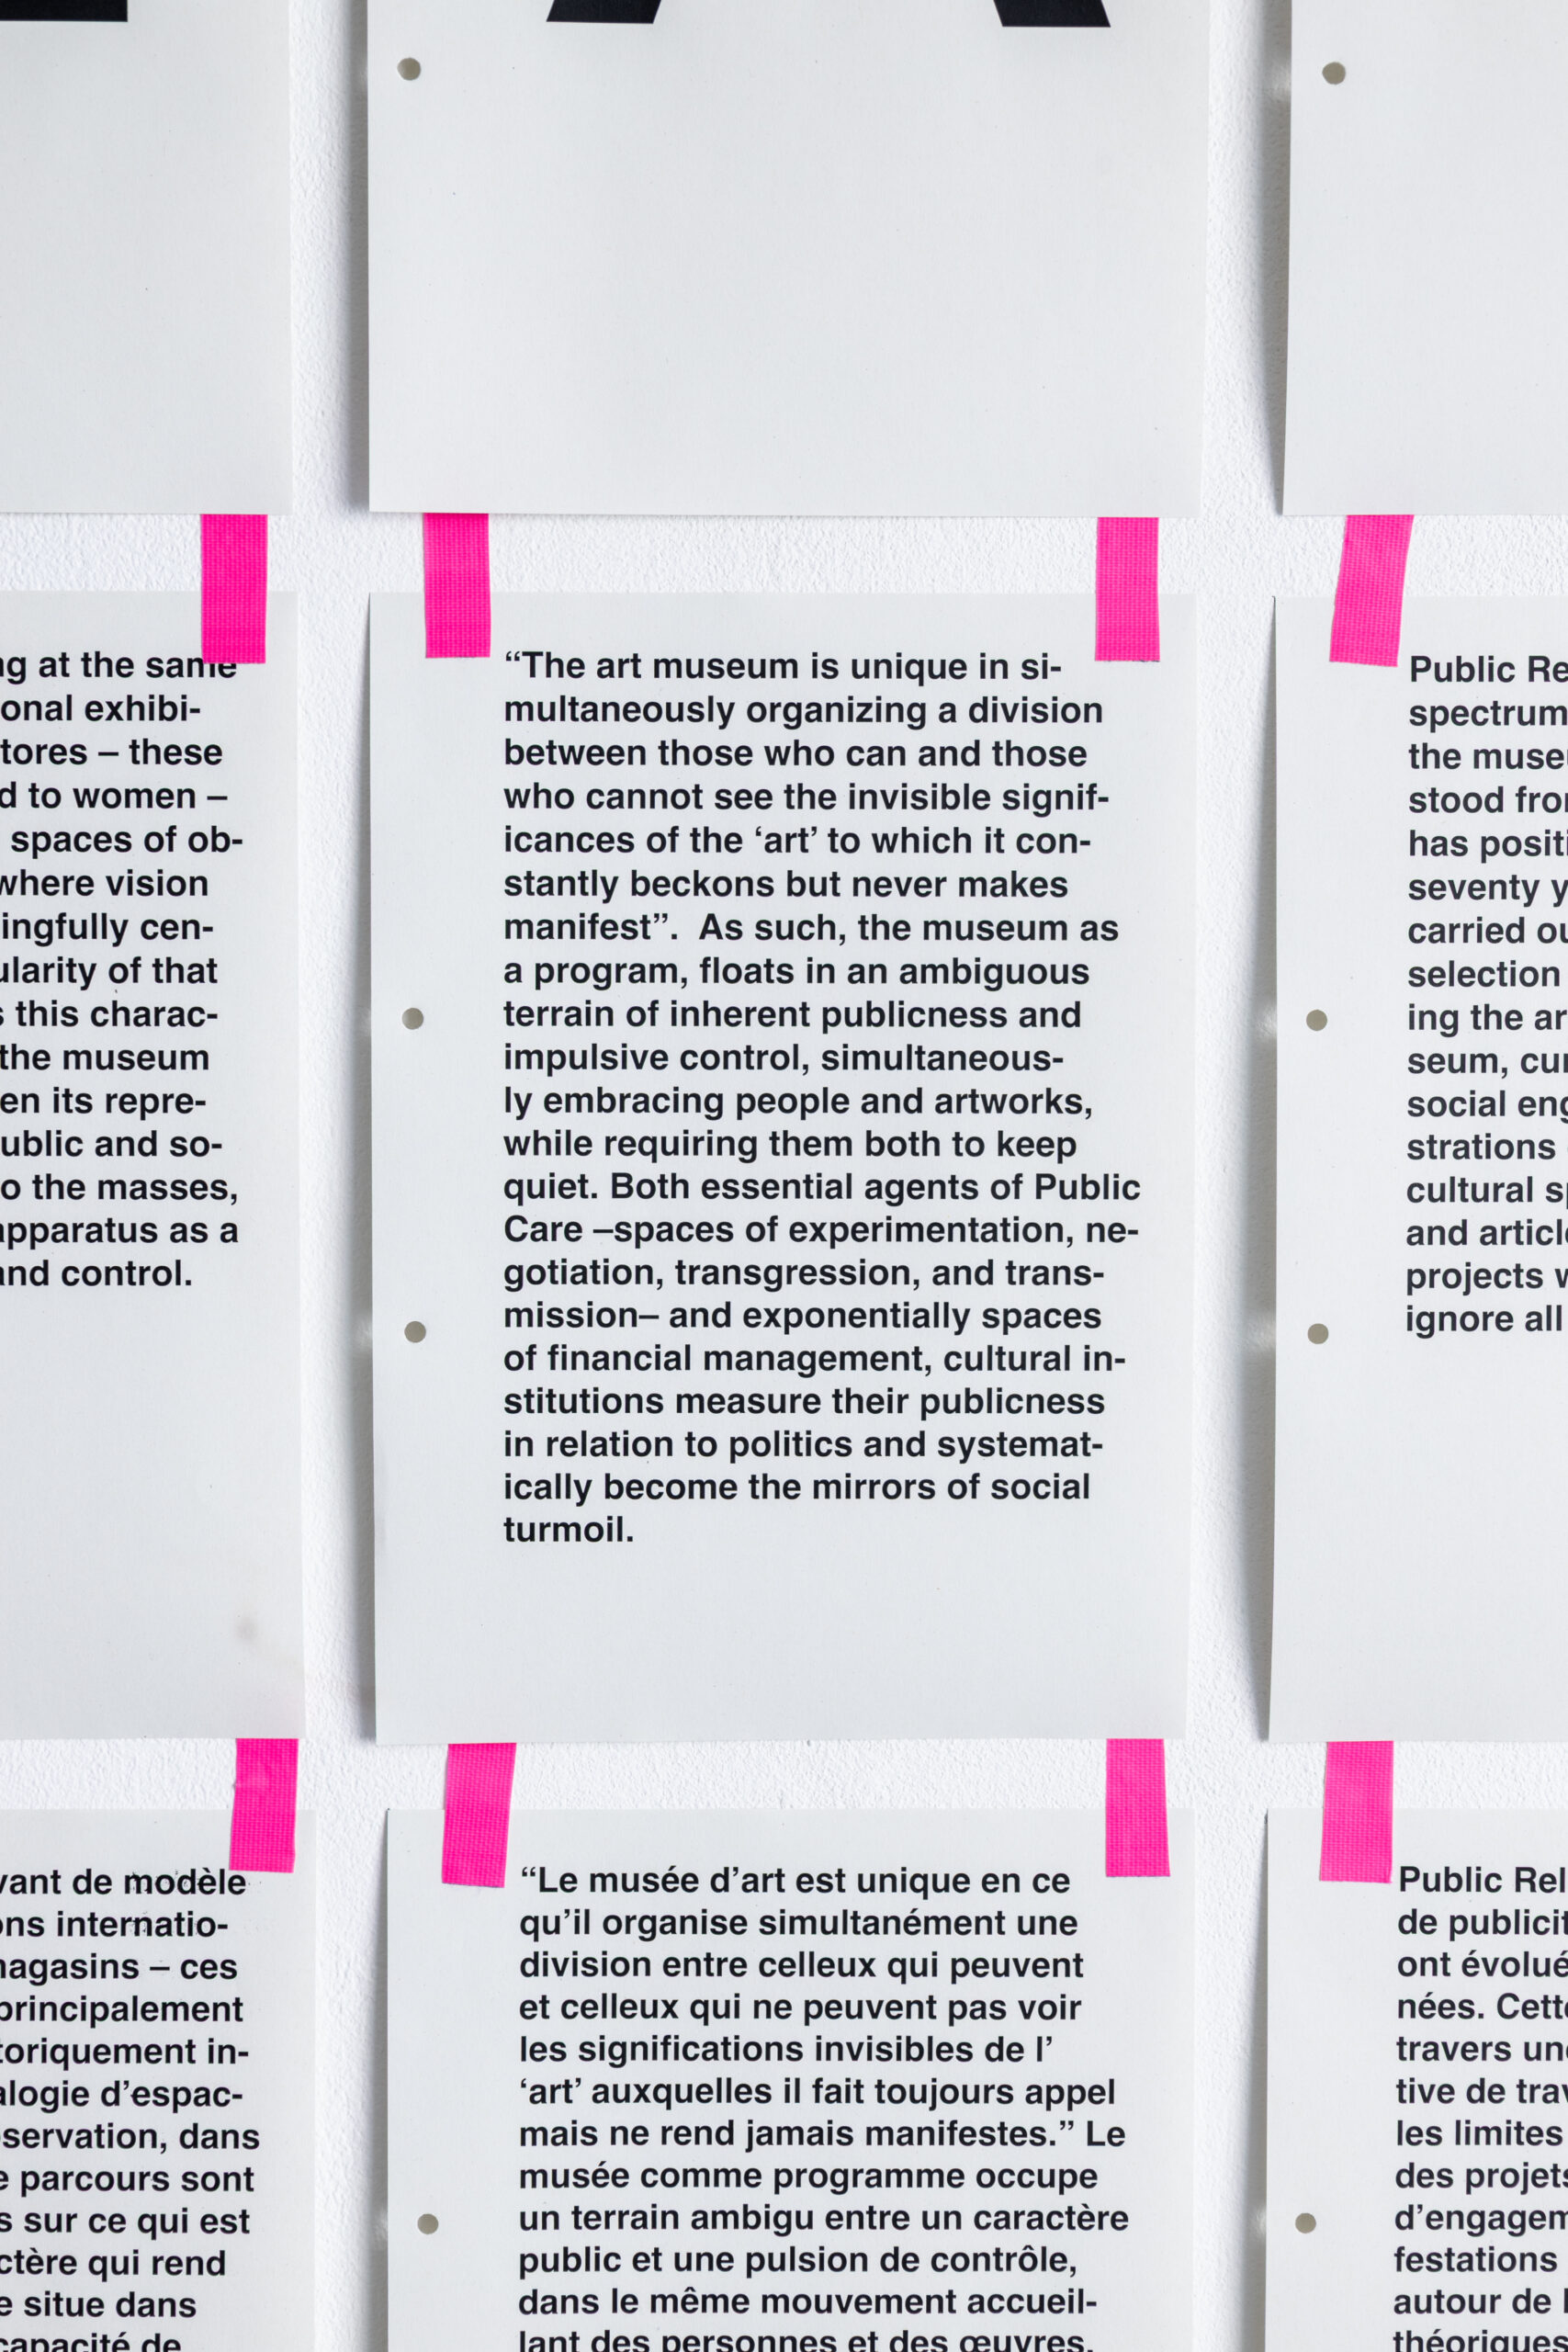 ng at the same
onal exhibi-
tores – these
d to women –
spaces of ob-
where vision
ingfully cen-
ularity of that
s this charac-
the museum
en its repre-
ublic and so-
o the masses,
apparatus as a
and control.
“The art museum is unique in si-
multaneously organizing a division
between those who can and those
who cannot see the invisible signif-
icances of the ‘art’ to which it con-
stantly beckons but never makes
manifest”.  As such, the museum as
a program, floats in an ambiguous
terrain of inherent publicness and
impulsive control, simultaneous-
ly embracing people and artworks,
while requiring them both to keep
quiet. Both essential agents of Public
Care –spaces of experimentation, ne-
gotiation, transgression, and trans-
mission– and exponentially spaces
of financial management, cultural in-
stitutions measure their publicness
in relation to politics and systemat-
ically become the mirrors of social
turmoil.
Public Re
spectrum
the muse
stood fro
has positi
seventy y
carried ou
selection
ing the ar
seum, cur
social eng
strations
cultural sp
and article
projects w
ignore all
vant de modèle
ons internatio-
magasins – ces
principalement
toriquement in-
alogie d’espac-
servation, dans
e parcours sont
s sur ce qui est
ctère qui rend
e situe dans
capacité de
“Le musée d’art est unique en ce
qu’il organise simultanément une
division entre celleux qui peuvent
et celleux qui ne peuvent pas voir
les significations invisibles de l’
‘art’ auxquelles il fait toujours appel
mais ne rend jamais manifestes.” Le
musée comme programme occupe
un terrain ambigu entre un caractère
public et une pulsion de contrôle,
dans le même mouvement accueil-
lant des personnes et des œuvres,
Public Rel
de publicit
ont évolué
nées. Cette
travers une
tive de trav
les limites
des projets
d’engagem
festations
autour de l
théoriques